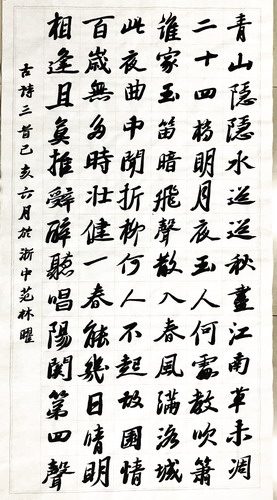 青山隐隐水迢迢秋尽江南草未凋
二十四橋明月夜玉人何處教吹簫
誰家玉笛暗飛聲散入春風滿洛城
此夜曲中聞折柳何人不起故園情
百歲無多時壯健一春能幾日晴明
相逢且莫推辭醉聽唱陽關第四聲
古诗三首己亥六月於浙中范林曜